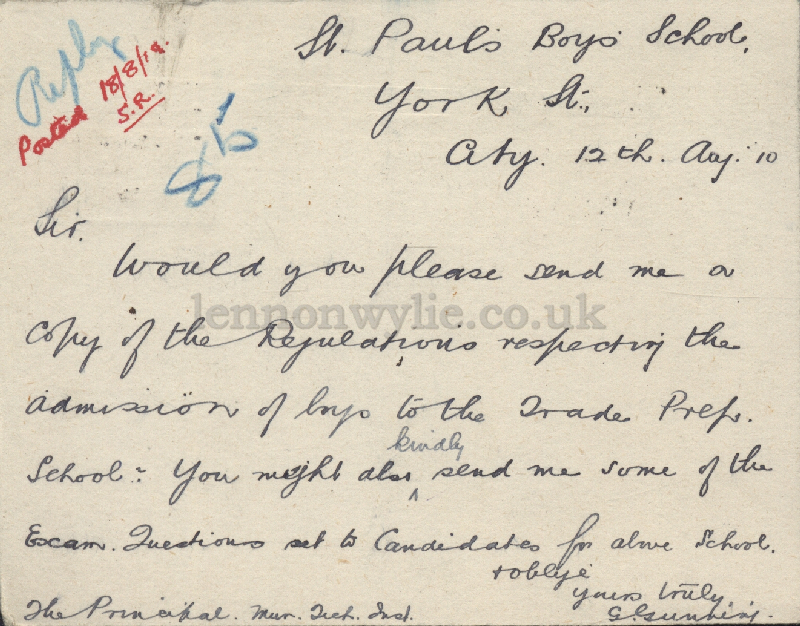 Reply
Posted 18/8/10.
S.R.
St. Paul's Boys' School,
York St.,
City. 12th. Aug. 10
Sir.
Would you please send me a
lennonwylie.co.uk
copy of the Regulations respecting the
admission of boys to the Trade Prep.
School:- You might also kindly send me some of the
Exam. Questions set to Candidates for above School.
& oblige
yours truly,
The Principal. Mun. Tech. Inst.